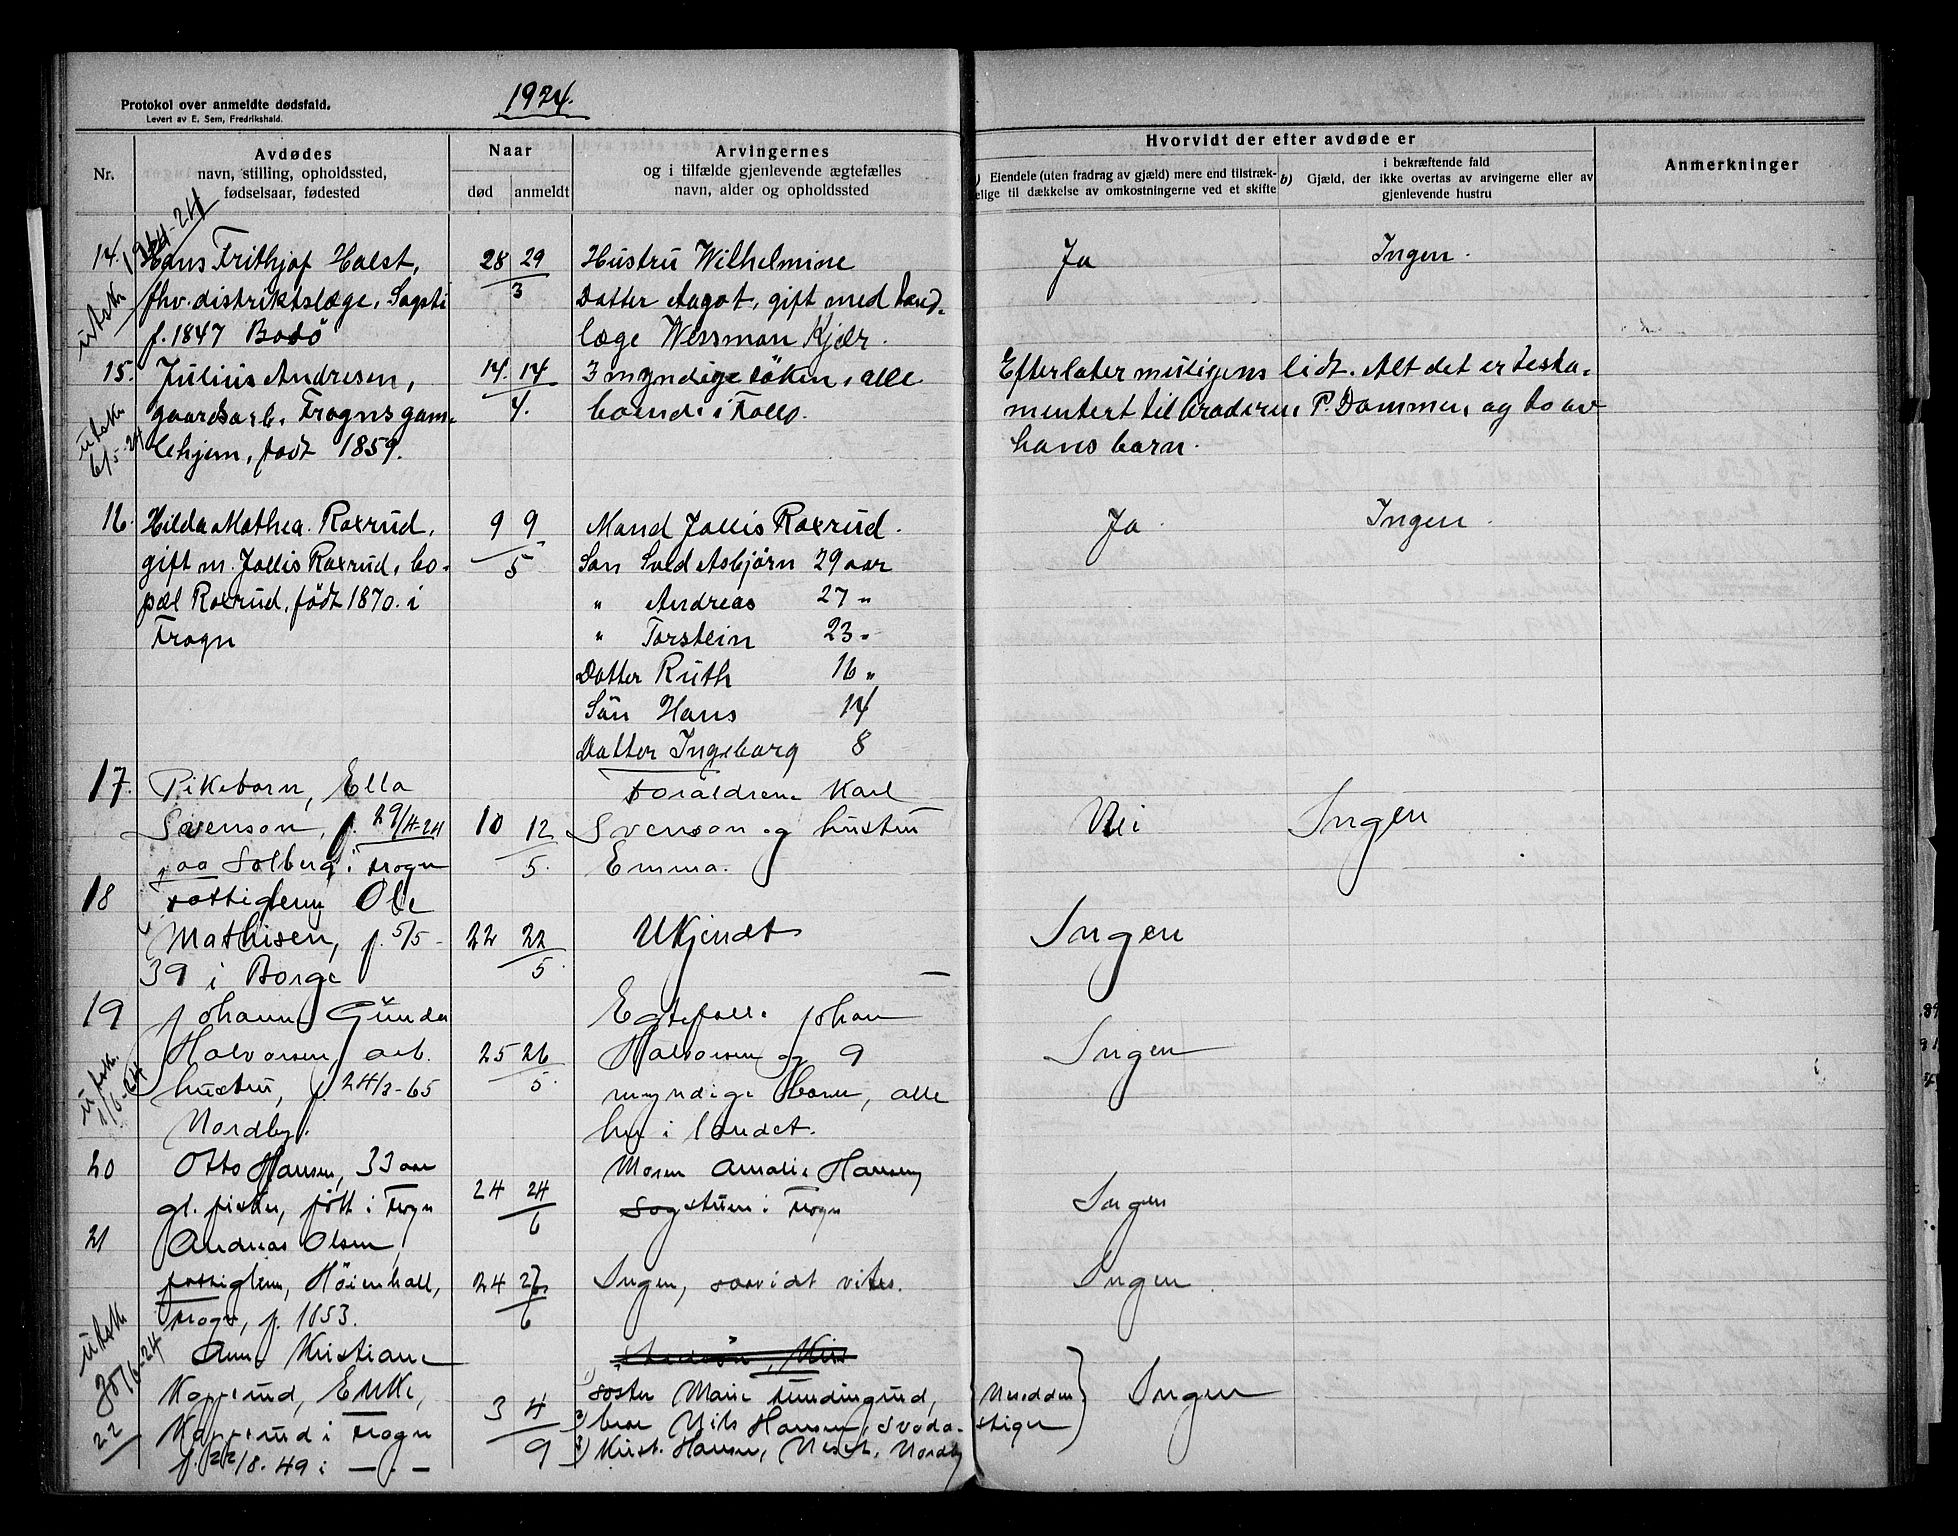 1924.
Protokol over anmeldte dødsfald.
Levert av E. Sem, Fredrikshald.
Nr.
Avdødes
navn, stilling, opholdssted,
fødselsaar, fødested
Naar
død
anmeldt
Arvingernes
og i tilfælde gjenlevende ægtefælles
navn, alder og opholdssted
Hvorvidt der efter avdøde er
Eiendele (uten fradrag av gjæld) mere end tilstræk-
elige til dækkelse av omkostningerne ved et skifte
b) i bekræftende fald
Gjæld, der ikke overtas av arvingerne eller av
gjenlevende hustru
Anmerkninger
14. Hans Frithjof Holst, 28 29/3 Hustru Wilhelmine Ja Ingen.
utskr. fhv. distriktslæge, Datter Aagot, gift med tand-
f. 1847 Bodö læge Wessman Kjær.
15. Julius Andresen, 14 14/4. 3 myndige söken, alle Efterlater muligens lidt. Alt det er testa-
utskr. 6/5-24 gaardsarb. Frogns gam- boende i Follo. mentert til broderen P. Dammen, og to av
lehjem, født 1859. hans barn.
16. Hilda Mathea Roxrud, 9 9/5 Mand Jollis Roxrud. Ja. Ingen.
gift m. Jollis Roxrud, bo- Sön Asbjörn 29 aar
pæl Roxrud, födt 1870. i " Andreas 27 "
Frogn " Torstein 23 "
Datter Ruth 16 "
Sön Hans 14
Datter Ingeborg 8
17. Pikebarn, Ella Foraldrene Karl
Svenson, f. 29/4-24 10 12/5. Svenson og hustru Nei Ingen
paa Solberg i Frogn Emma.
18 Fattiglem Ole
Mathisen, f. 5/5- 22 22/5. Ukjendt Ingen
39 i Borge
19 Johanne Gunda Egtefelle Johan
Halvorsen, arb. 25 26/5. Halvorsen og 9 Ingen
utskr. 1/6-24 hustru, f. 24/3-65 myndige barn, alle
Nordby. her i landet.
20 Otto Hansen, 33 aar Moren Amalie Hansen
gl. fisker, födt i Frogn 24 24/6 i Frogn Ingen
21 Andreas Olsen,
fattiglem, Höienhall, 24 27/6 Ingen, saavidt vites. Ingen.
Frogn, f. 1853.
utskr. 30/6-24 Anne Kristiane
Kopperud, Enke, 3 4/9 1) Söster Marie Tundingrud, Nesodden Ingen
22 Kopperud i Frogn 2) bror Nils Hansen, Svoda- stiger
f. 22/8. 49 i — . — 3) Krist. Hansen, Neset, Nordby